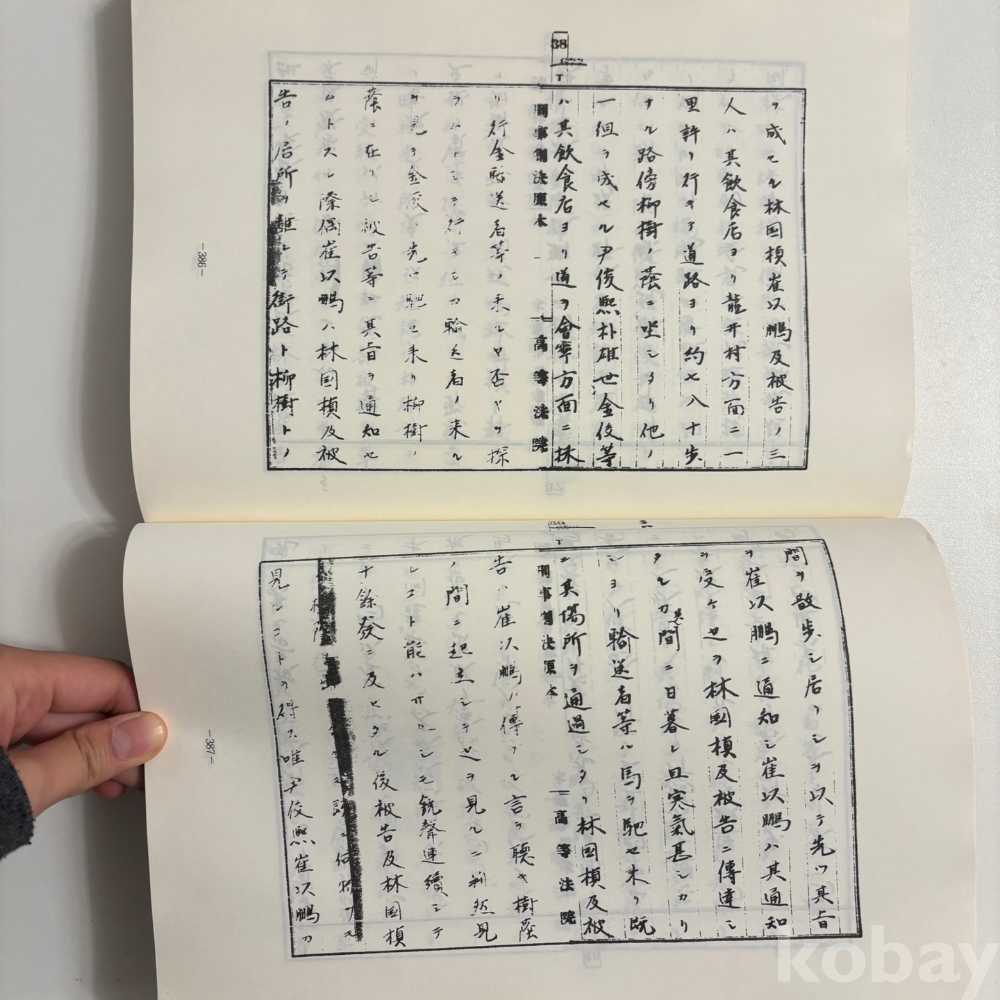 38
ヲ成セル林国楨崔以鵬及被告ノ三
人ハ其飲食店ヨリ龍井村方面ニ一
里許リ行キテ道路ヨリ約七八十歩
ナル路傍柳樹ノ蔭ニ坐シタリ他ノ
一組ヲ成セル尹俊熙朴雄世金俊等
ハ其飲食店ヨリ道ヲ會寧方面ニ採
刑事判決原本
高等法院
リ行金輸送者等ノ来ルヤ否ヤヲ探
ラムトシテ行キシカ輸送者ノ来ル
ヲ見テ金俊先ツ馳セ来リ柳樹ノ
蔭ニ在リシ被告等ニ其旨ヲ通知セ
ムトスル際偶崔以鵬ハ林国楨及被
告ノ居所ヲ離レテ街路ト柳樹トノ
-386-
間ヲ散歩シ居リシヲ以テ先ツ其旨
ヲ崔以鵬ニ通知シ崔以鵬ハ其通知
ヲ受ケ之ヲ林国楨及被告ニ傳達シ
タルカ其間ニ日暮レ且寒氣甚シカリ
シヨリ輸送者等ハ馬ヲ馳セ来リ既
ニ其場所ヲ通過シタリ林国楨及被
刑事判決原本
高等法院
告ハ崔以鵬ノ傳フル言ヲ聴キ樹蔭
ノ間ニ起立シテ之ヲ見ルニ判然見
ルコト能ハサリシモ銃聲連續シテ
十餘發ニ及ヒタル後被告及林国楨
見ルコトヲ得ス唯尹俊熙崔以鵬カ
-387-
kobay